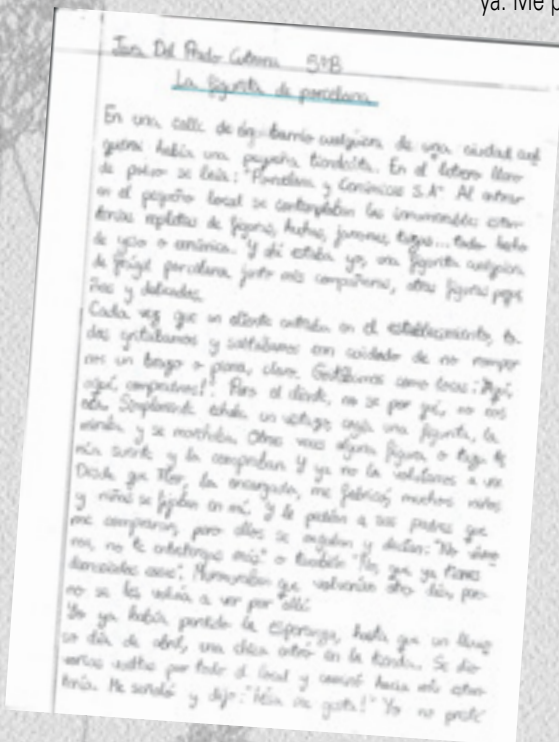 ya. Me p
Del Prado 5ºB
La figurita de porcelana
En una calle de un barrio cualquiera de una ciudad cual
quiera había una pequeña tiendecita. En el letrero lleno
de polvo se leía: "Porcelana y Cerámicas S.A" Al entrar
en el pequeño local se contemplaban las innumerables estan
terías repletas de figuras, jarrones, tazas... todo hecho
de yeso o cerámica. Y ahí estaba yo, una figurita cualquiera
de frágil porcelana junto mis compañeras, otras figuras peque
ñas y delicadas.
Cada vez que un cliente entraba en el establecimiento, to
das gritábamos y saltábamos con cuidado de no romper
nos un brazo o pierna, claro. Gritábamos como locas: "¡Aquí,
aquí, compradnos!". Pero el cliente, no se por qué, no nos
oía. Simplemente echaba un vistazo cogía una figurita, la
miraba y se marchaba. Otras veces alguna figura o taza te
nía suerte y la compraban y ya no la volvíamos a ver.
Desde que Flor, la encargada, me fabricó, muchos niños
y niñas se fijaban en mí. Y le pedían a sus padres que
me compraran, pero ellos se negaban y decían: "No
no, no te entretengas más" o también "No, que ya tienes
demasiadas cosas". Murmuraban que volverían otro día, pero
no se les volvía a ver por allí.
Yo ya había perdido la esperanza, hasta que un lluvio
so día de abril, una chica entró en la tienda. Se dio
varias vueltas por todo el local y caminó hacia mi estan
tería. Me señaló y dijo: "¡Ésa me gusta!" Yo no